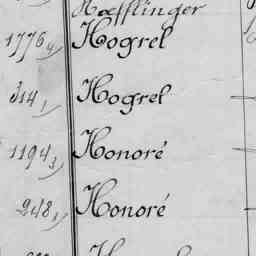 Hœfflinger
1776 4/ Hogrel
314 1/ Hogrel
1194 3/ Honoré
248 1/ Honoré